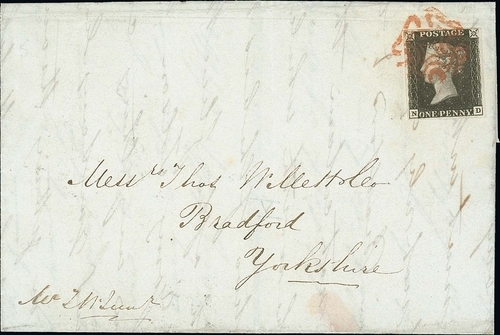 POSTAGE
N D
ONE PENNY
Messrs Thos Willett & Co
Bradford
Yorkshire